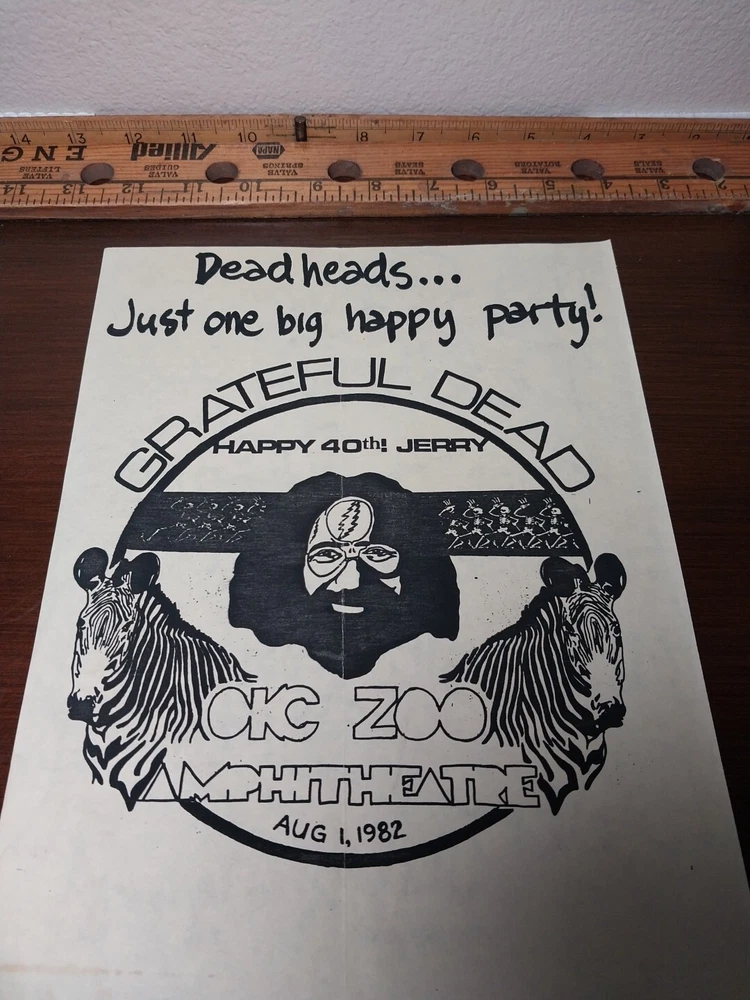 14 13 12 11 10 8 7 6 5 4 3 2
ENG Allied NAPA
VALVE LIFTERS VALVE GUIDES VALVE SPRINGS VALVE SEATS VALVE ROTATORS VALVE SEALS
14 13 12 11 10 9 8 7 6 5 4 3 2
Deadheads...
Just one big happy party!
GRATEFUL DEAD
HAPPY 40th! JERRY
OKC ZOO
AMPHITHEATRE
AUG 1, 1982